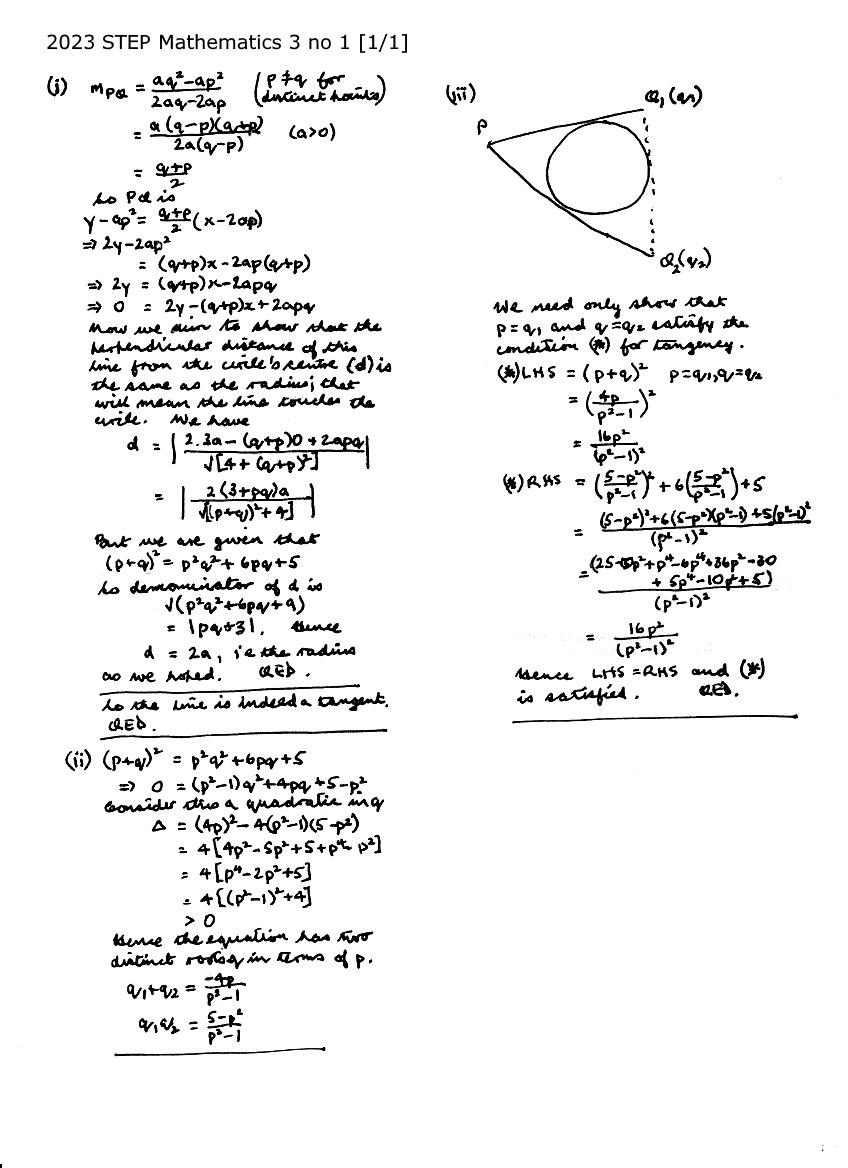 2023 STEP Mathematics 3 no 1 [1/1]
(i) m_PQ = (aq²-ap²)/(2aq-2ap) (p≠q for distinct points)
= a(q-p)(q+p)/2a(q-p) (a>0)
= (q+p)/2
So PQ is
y-ap² = (q+p)/2 (x-2ap)
⇒ 2y-2ap²
= (q+p)x-2ap(q+p)
⇒ 2y = (q+p)x-2apq
⇒ 0 = 2y-(q+p)x+2apq
Now we aim to show that the
perpendicular distance of this
line from the circle's centre (d) is
the same as the radius; that
will mean the line touches the
circle. We have
d = |(2.3a-(q+p)0+2apq)/√[4+(q+p)²]|
= |2(3+pq)a/√[(p+q)²+4]|
But we are given that
(p+q)² = p²q²+6pq+5
So denominator of d is
√(p²q²+6pq+9)
= |pq+3|. Hence
d = 2a, i.e the radius
as we hoped. QED.
So the line is indeed a tangent.
QED.
(ii) (p+q)² = p²q²+6pq+5
⇒ 0 = (p²-1)q²+4pq+5-p²
Consider this a quadratic in q
Δ = (4p)²-4(p²-1)(5-p²)
= 4[4p²-5p²+5+p⁴-p²]
= 4[p⁴-2p²+5]
= 4[(p²-1)²+4]
> 0
Hence the equation has two
distinct roots q in terms of p.
q₁+q₂ = -4p/(p²-1)
q₁q₂ = (5-p²)/(p²-1)
(iii)
P
Q₁(q₁)
Q₂(q₂)
We need only show that
p=q₁ and q=q₂ satisfy the
condition (*) for tangency.
(*)LHS = (p+q)² p=q₁,q=q₂
= (4p/(p²-1))²
= 16p²/(p²-1)²
(*)RHS = ((5-p²)/(p²-1))²+6((5-p²)/(p²-1))+5
= ((5-p²)²+6(5-p²)(p²-1)+5(p²-1)²)/(p²-1)²
= (25-10p²+p⁴-6p⁴+36p²-30
+5p⁴-10p²+5)/(p²-1)²
= 16p²/(p²-1)²
Hence LHS=RHS and (*)
is satisfied. QED.